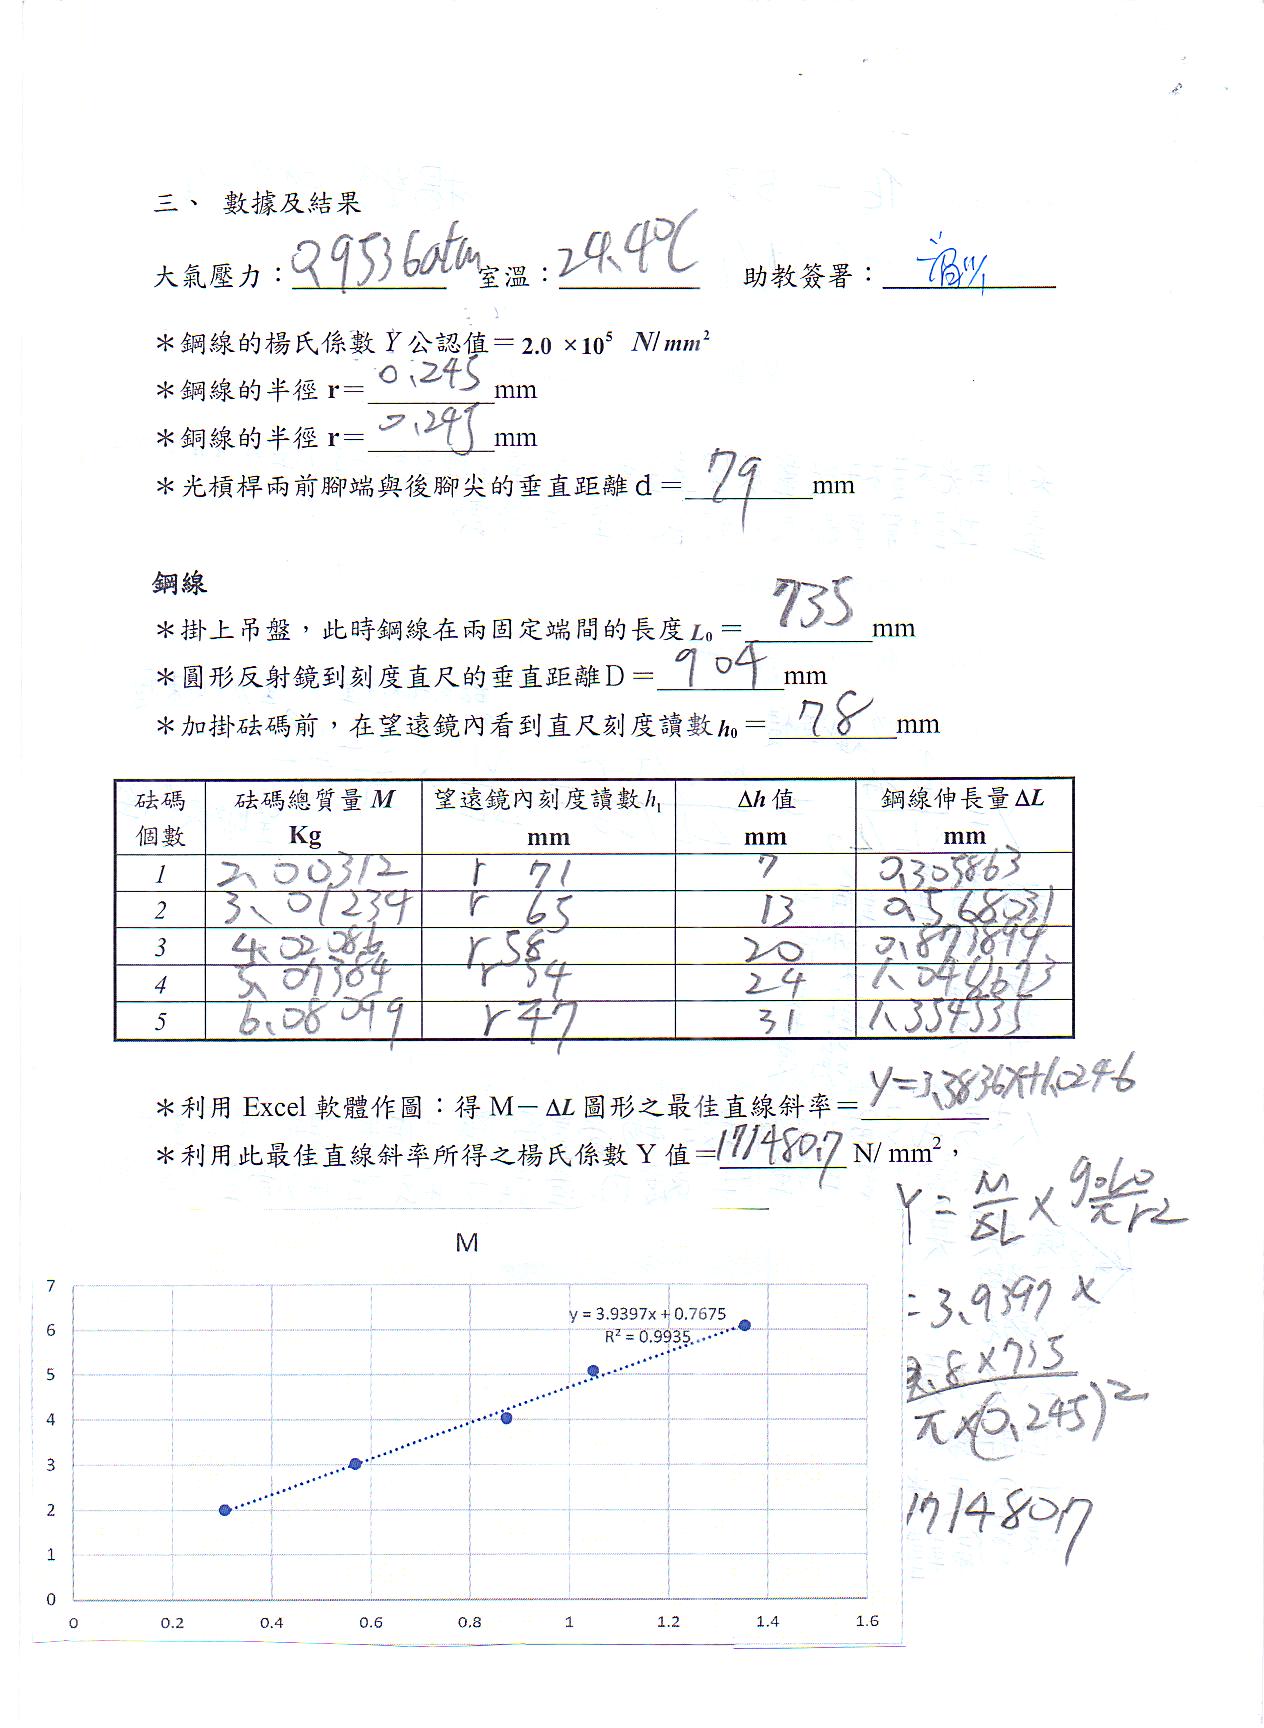 三、 數據及結果
大氣壓力:0.9536atm 室溫:24.4℃ 助教簽署:
＊鋼線的楊氏係數Y公認值＝2.0 ×10⁵ N/mm²
＊鋼線的半徑 r＝0.245mm
＊銅線的半徑 r＝0.245mm
＊光槓桿兩前腳端與後腳尖的垂直距離d＝79mm
鋼線
＊掛上吊盤，此時鋼線在兩固定端間的長度L₀＝735mm
＊圓形反射鏡到刻度直尺的垂直距離D＝904mm
＊加掛砝碼前，在望遠鏡內看到直尺刻度讀數h₀＝78mm
砝碼個數 砝碼總質量 M Kg 望遠鏡內刻度讀數h₁ mm Δh 值 mm 鋼線伸長量ΔL mm
1 2.00312 r 71 7 0.305863
2 3.01234 r 65 13 0.568031
3 4.02086 r 58 20 0.873894
4 5.07384 r 54 24 1.048673
5 6.08049 r 47 31 1.354535
＊利用 Excel 軟體作圖：得 M－ΔL 圖形之最佳直線斜率＝y=3.3836x+1.0246
＊利用此最佳直線斜率所得之楊氏係數 Y 值＝171480.7 N/ mm²，
Y = M/ΔL × g₀L₀/πr²
= 3.9397 ×
9.8×735/π×(0.245)²
171480.7
M
7
6
5
4
3
2
1
0
y = 3.9397x + 0.7675
R² = 0.9935
0 0.2 0.4 0.6 0.8 1 1.2 1.4 1.6